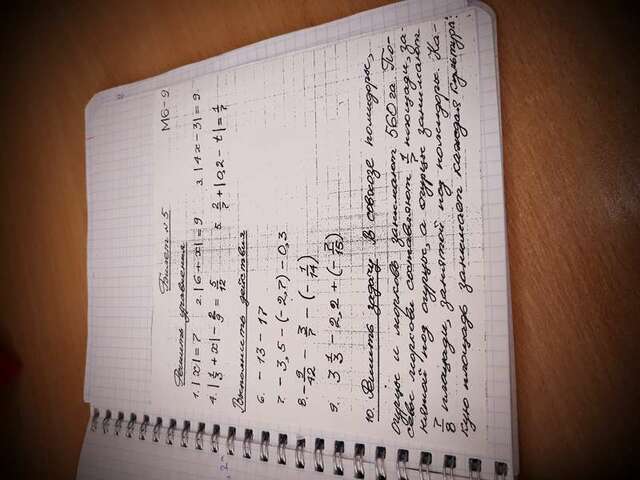 М6-9
Билет №5
Решить уравнения
1. |x| = 7   2. |6 + x| = 9   3. |4x - 3| = 9
4. |1/3 + x| - 2/9 = 5/12   5. 2/7 + |0,2 - t| = 1/7
Выполнить действия
6. - 13 - 17
7. - 3,5 - (-2,7) - 0,3
8. - 9/12 - 3/7 - (- 1/14)
9. 3 1/3 - 2,2 + (- 7/15)
10. Решить задачу. В совхозе помидоры,
огурцы и морковь занимают 560 га. По-
севы моркови составляют 1/7 площади, за-
нятой под огурцы, а огурцы занимают
7/8 площади, занятой под помидоры. Ка-
кую площадь занимает каждая культура?